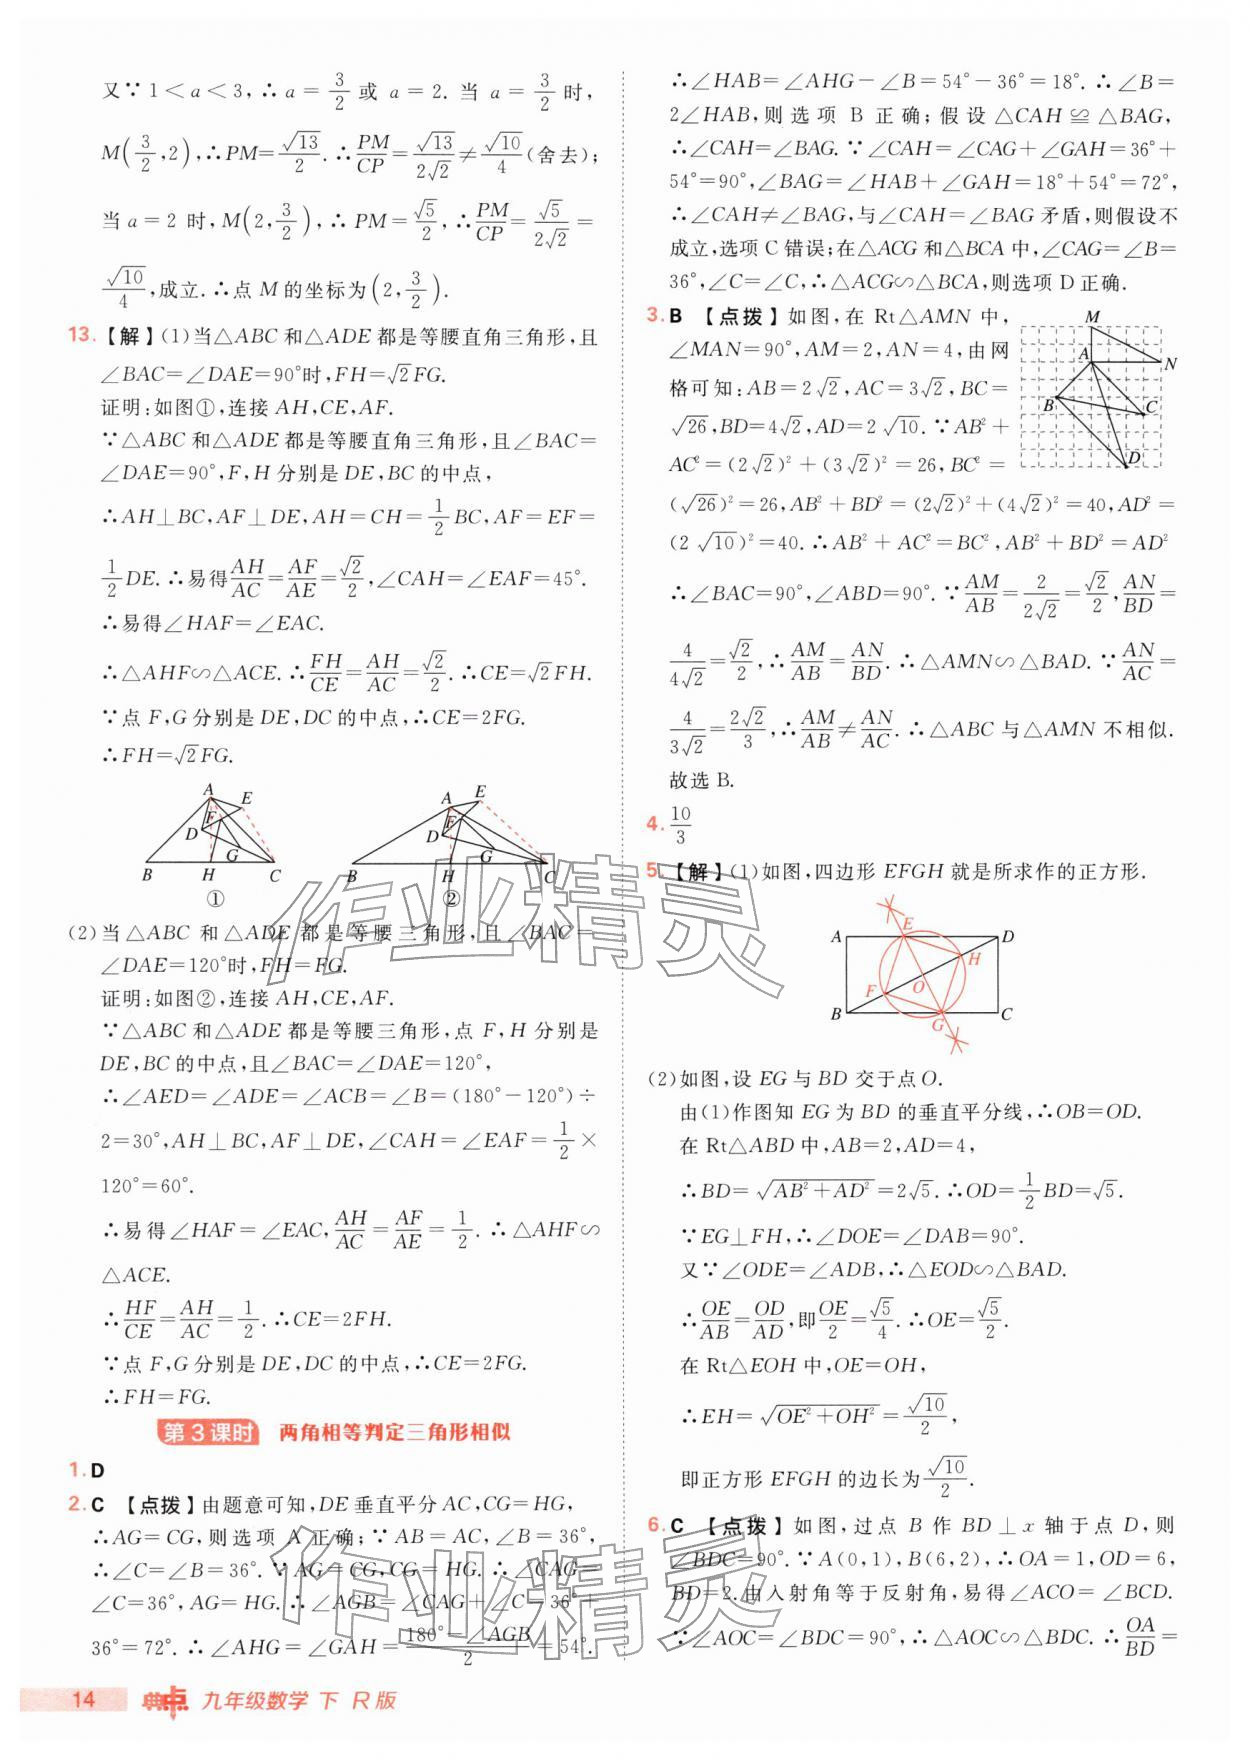 又∵1<a<3,∴a=3/2或a=2.当a=3/2时,
M(3/2,2),∴PM=√13/2.∴PM/CP=√13/(2√2)≠√10/4(舍去);
当a=2时,M(2,3/2),∴PM=√5/2,∴PM/CP=(√5/2)/(2√2)=
√10/4,成立.∴点M的坐标为(2,3/2).
13.【解】(1)当△ABC和△ADE都是等腰直角三角形,且
∠BAC=∠DAE=90°时,FH=√2FG.
证明:如图①,连接AH,CE,AF.
∵△ABC和△ADE都是等腰直角三角形,且∠BAC=
∠DAE=90°,F,H分别是DE,BC的中点,
∴AH⊥BC,AF⊥DE,AH=CH=1/2BC,AF=EF=
1/2DE.∴易得AH/AC=AF/AE=√2/2,∠CAH=∠EAF=45°.
∴易得∠HAF=∠EAC.
∴△AHF∽△ACE.∴FH/CE=AH/AC=√2/2.∴CE=√2FH.
∵点F,G分别是DE,DC的中点,∴CE=2FG.
∴FH=√2FG.
A E F D G B H C ①
A E F D G B H C ②
(2)当△ABC和△ADE都是等腰三角形,且∠BAC=
∠DAE=120°时,FH=FG.
证明:如图②,连接AH,CE,AF.
∵△ABC和△ADE都是等腰三角形,点F,H分别是
DE,BC的中点,且∠BAC=∠DAE=120°,
∴∠AED=∠ADE=∠ACB=∠B=(180°-120°)÷
2=30°,AH⊥BC,AF⊥DE,∠CAH=∠EAF=1/2×
120°=60°.
∴易得∠HAF=∠EAC,AH/AC=AF/AE=1/2.∴△AHF∽
△ACE.
∴HF/CE=AH/AC=1/2.∴CE=2FH.
∵点F,G分别是DE,DC的中点,∴CE=2FG.
∴FH=FG.
第3课时 两角相等判定三角形相似
1.D
2.C 【点拨】由题意可知,DE垂直平分AC,CG=HG,
∴AG=CG,则选项A正确;∵AB=AC,∠B=36°,
∴∠C=∠B=36°.∵AG=CG,CG=HG.∴∠CAG=
∠C=36°,AG=HG.∴∠AGB=∠CAG+∠C=36°+
36°=72°.∴∠AHG=∠GAH=(180°-∠AGB)/2=54°.
∴∠HAB=∠AHG-∠B=54°-36°=18°.∴∠B=
2∠HAB,则选项B正确;假设△CAH≌△BAG,
∴∠CAH=∠BAG.∵∠CAH=∠CAG+∠GAH=36°+
54°=90°,∠BAG=∠HAB+∠GAH=18°+54°=72°,
∴∠CAH≠∠BAG,与∠CAH=∠BAG矛盾,则假设不
成立,选项C错误;在△ACG和△BCA中,∠CAG=∠B=
36°,∠C=∠C,∴△ACG∽△BCA,则选项D正确.
3.B 【点拨】如图,在Rt△AMN中,
∠MAN=90°,AM=2,AN=4,由网
格可知:AB=2√2,AC=3√2,BC=
√26,BD=4√2,AD=2√10.∵AB²+
AC²=(2√2)²+(3√2)²=26,BC²=
(√26)²=26,AB²+BD²=(2√2)²+(4√2)²=40,AD²=
(2√10)²=40.∴AB²+AC²=BC²,AB²+BD²=AD²
∴∠BAC=90°,∠ABD=90°.∵AM/AB=2/(2√2)=√2/2,AN/BD=
4/(4√2)=√2/2,∴AM/AB=AN/BD.∴△AMN∽△BAD.∵AN/AC=
4/(3√2)=2√2/3,∴AM/AB≠AN/AC.∴△ABC与△AMN不相似.
故选B.
M A N B C D
4.10/3
5.【解】(1)如图,四边形EFGH就是所求作的正方形.
A E D H F O B G C
(2)如图,设EG与BD交于点O.
由(1)作图知EG为BD的垂直平分线,∴OB=OD.
在Rt△ABD中,AB=2,AD=4,
∴BD=√(AB²+AD²)=2√5.∴OD=1/2BD=√5.
∵EG⊥FH,∴∠DOE=∠DAB=90°.
又∵∠ODE=∠ADB,∴△EOD∽△BAD.
∴OE/AB=OD/AD,即OE/2=√5/4.∴OE=√5/2.
在Rt△EOH中,OE=OH,
∴EH=√(OE²+OH²)=√10/2,
即正方形EFGH的边长为√10/2.
6.C 【点拨】如图,过点B作BD⊥x轴于点D,则
∠BDC=90°.∵A(0,1),B(6,2),∴OA=1,OD=6,
BD=2.由入射角等于反射角,易得∠ACO=∠BCD.
∵∠AOC=∠BDC=90°,∴△AOC∽△BDC.∴OA/BD=
作业精灵
作业精灵
14 典点 九年级数学 下 R版